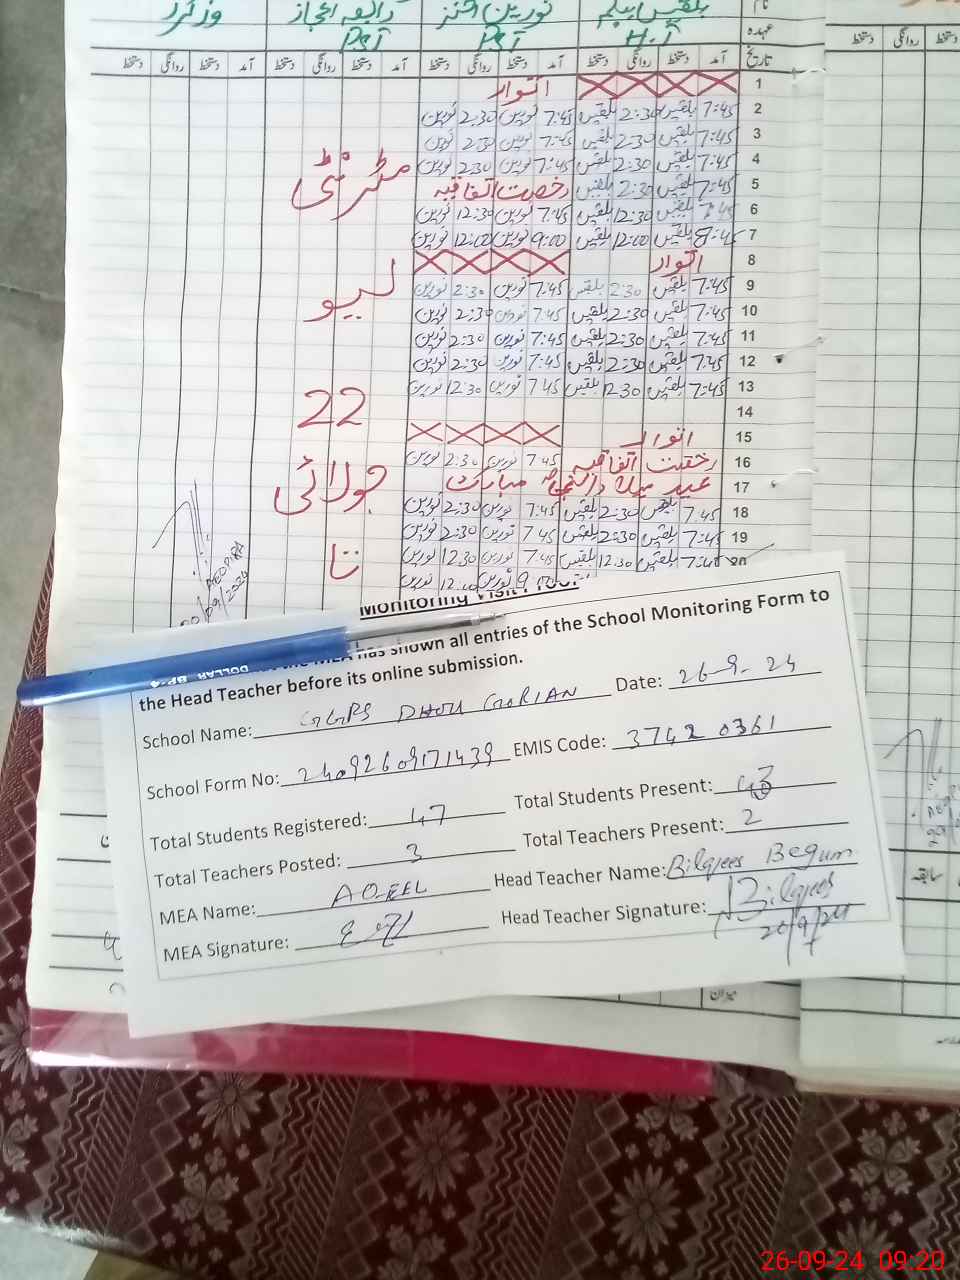 بلقیس بیگم نورین اختر رابعہ اعجاز وزٹرز
عہدہ H.T PST PST
تاریخ آمد دستخط روانگی دستخط آمد دستخط روانگی دستخط آمد دستخط روانگی دستخط آمد دستخط روانگی دستخط
1 اتوار
2 7:45 بلقیس 2:30 بلقیس 7:45 نورین 2:30 نورین
3 7:45 بلقیس 2:30 بلقیس 7:45 نورین 2:30 نورین
4 7:45 بلقیس 2:30 بلقیس 7:45 نورین 2:30 نورین
5 7:45 بلقیس 2:30 بلقیس رخصت اتفاقیہ
6 7:45 بلقیس 12:30 بلقیس 7:45 نورین 12:30 نورین
7 8:45 بلقیس 12:00 بلقیس 9:00 نورین 12:00 نورین
8 اتوار
9 7:45 بلقیس 2:30 بلقیس 7:45 نورین 2:30 نورین
10 7:45 بلقیس 2:30 بلقیس 7:45 نورین 2:30 نورین
11 7:45 بلقیس 2:30 بلقیس 7:45 نورین 2:30 نورین
12 7:45 بلقیس 2:30 بلقیس 7:45 نورین 2:30 نورین
13 7:45 بلقیس 12:30 بلقیس 7:45 نورین 12:30 نورین
14
15 اتوار
16 رخصت اتفاقیہ 7:45 نورین 2:30 نورین
17 عید میلاد النبی مبارک
18 7:45 بلقیس 2:30 بلقیس 7:45 نورین 2:30 نورین
19 7:45 بلقیس 2:30 بلقیس 7:45 نورین 2:30 نورین
20 7:45 بلقیس 12:30 بلقیس 7:45 نورین 12:30 نورین
نورین نورین
مٹرنٹی
لیو
22
جولائی
تا
09/2024
DOLLAR
Monitoring Visit
MEA has shown all entries of the School Monitoring Form to
the Head Teacher before its online submission.
School Name: GGPS DHOU GORIAN Date: 26-9-24
School Form No: 24092609171439 EMIS Code: 37420361
Total Students Registered: 47 Total Students Present: 43
Total Teachers Posted: 3 Total Teachers Present: 2
MEA Name: AQEEL Head Teacher Name: Bilqees Begum
MEA Signature: Head Teacher Signature: Bilqees
میزان
دستخط روانگی دستخط
سابقہ
26-09-24 09:20